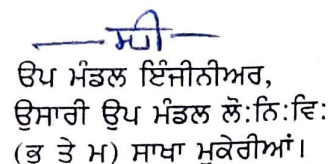 ਓਪ ਮੰਡਲ ਇੰਜੀਨੀਅਰ,
ਉਸਾਰੀ ਉਪ ਮੰਡਲ ਲੋ:ਨਿ:ਵਿ:
(ਭ ਤੇ ਮ) ਸਾਖਾ ਮੁਕੇਰੀਆਂ।